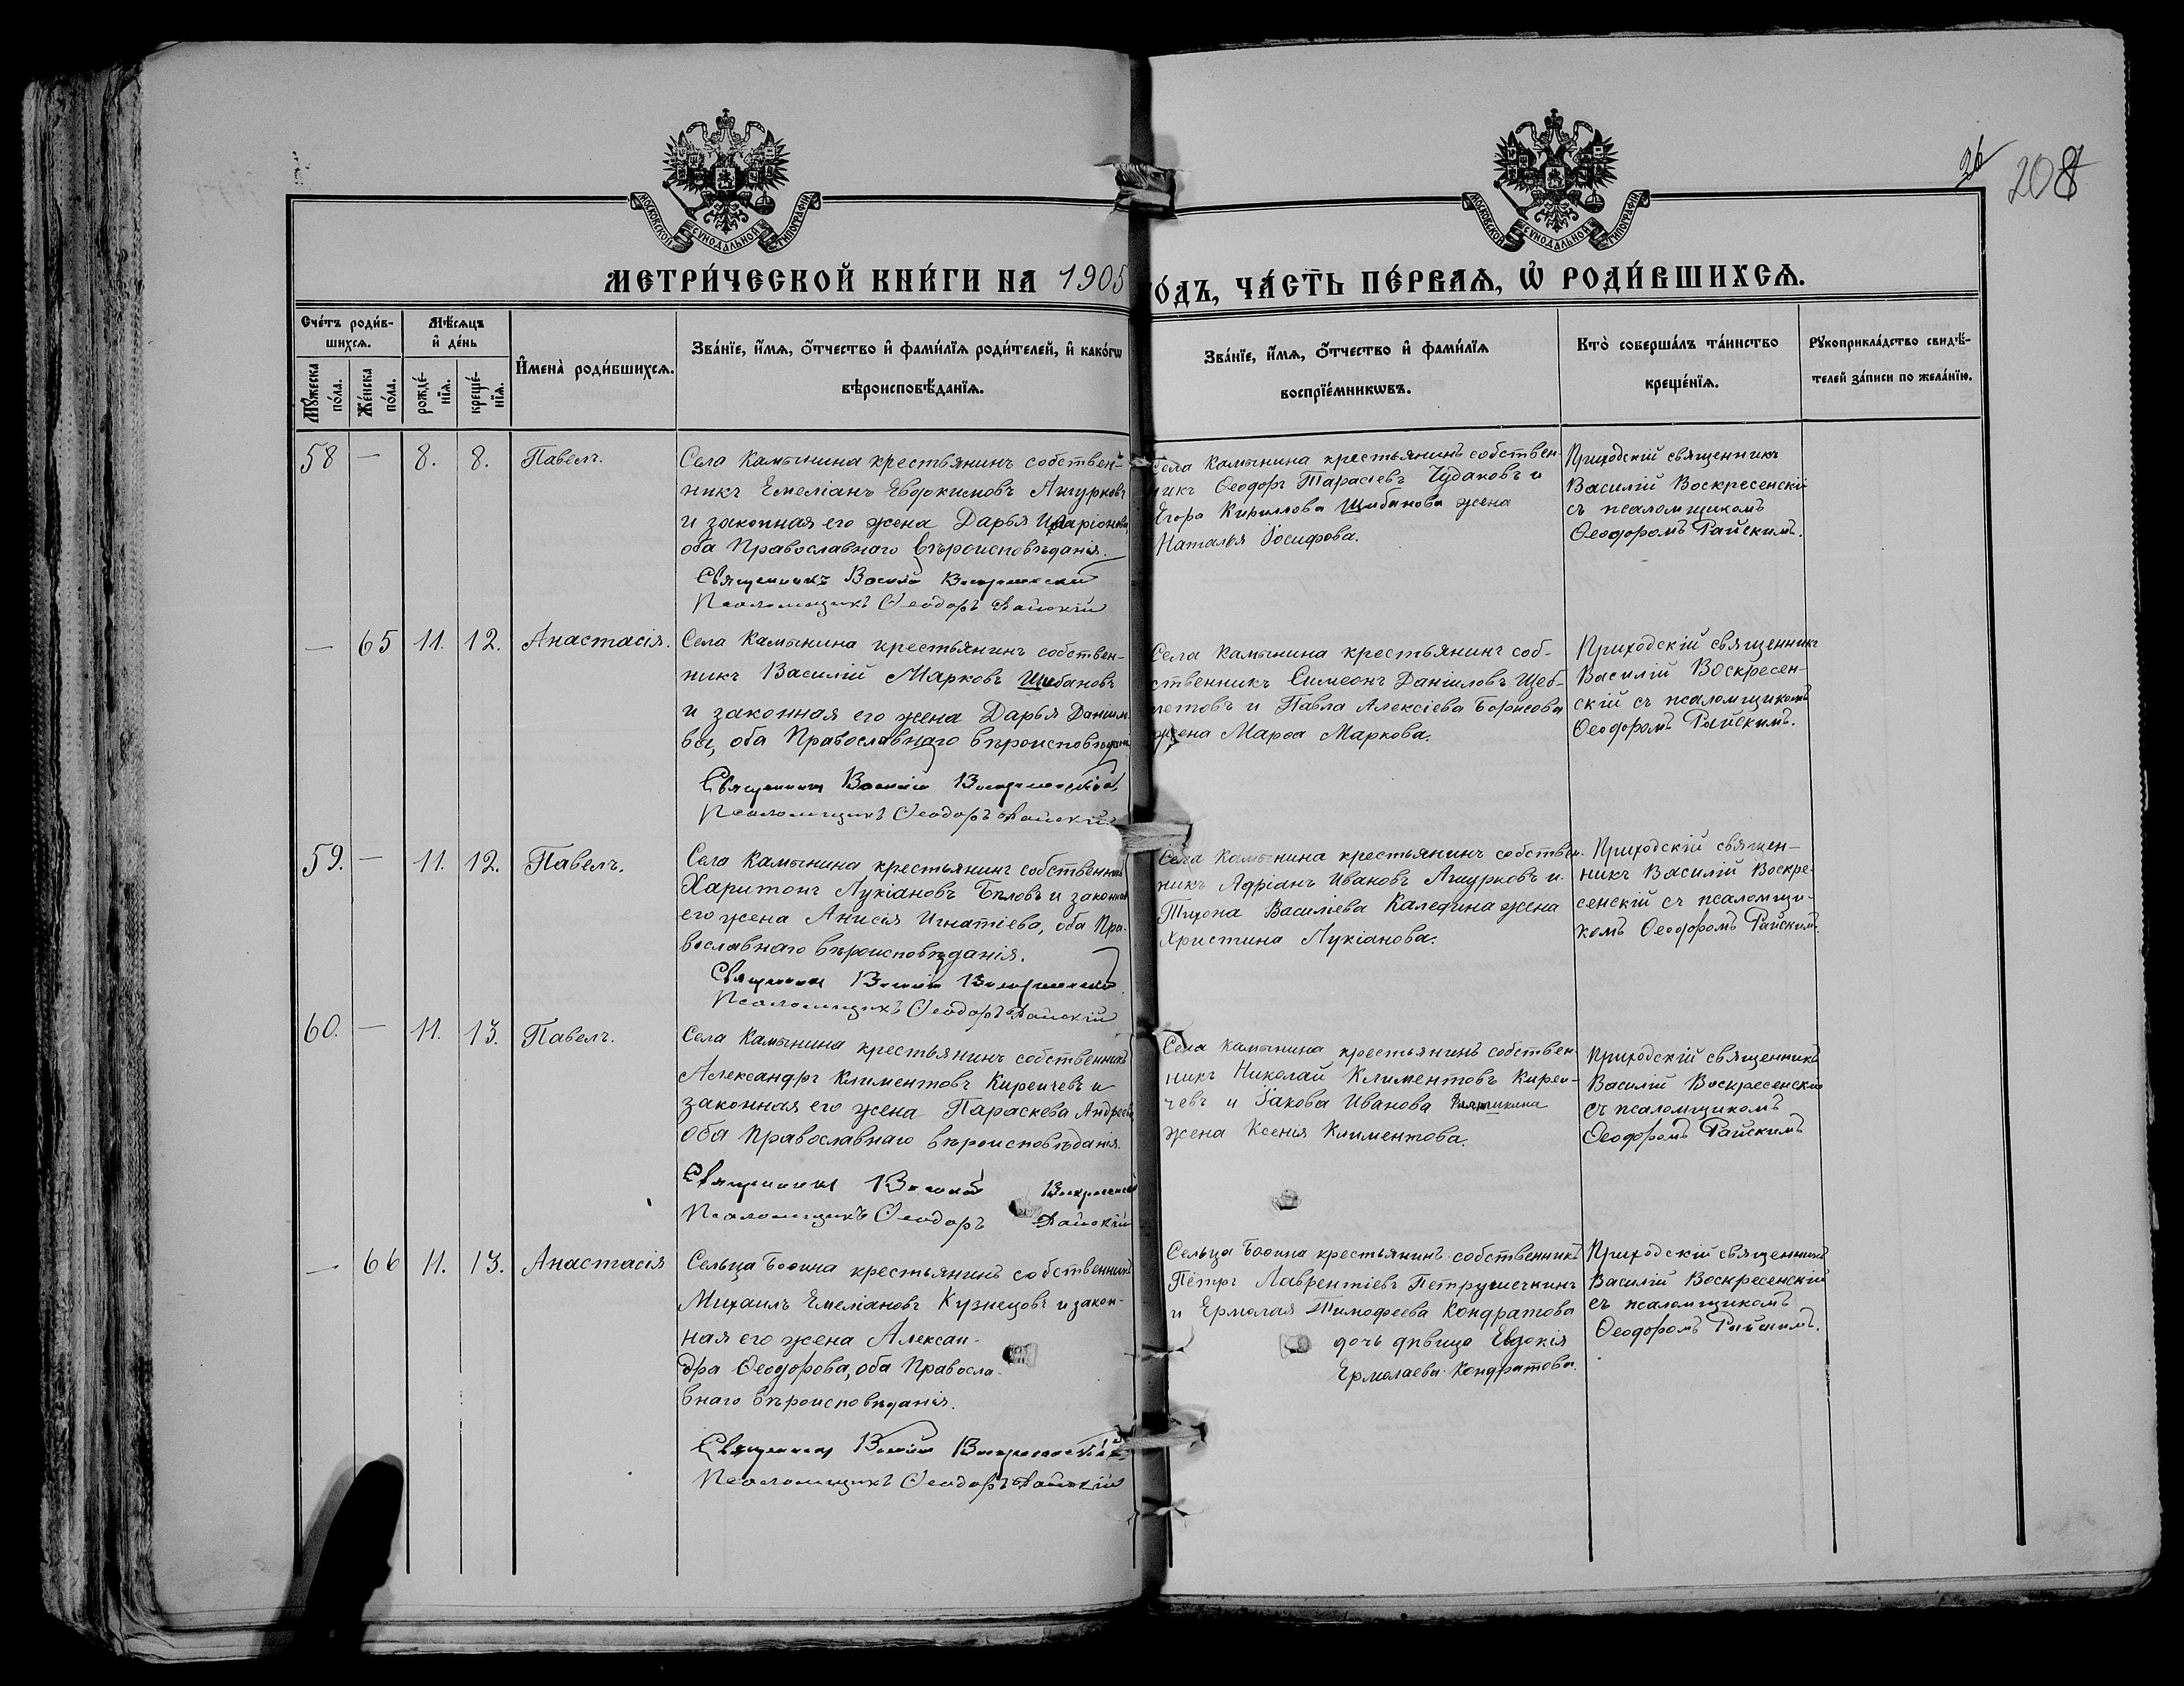 МОСКОВСКОЙ СѴНОДАЛЬНОЙ ТИПОГРАФІИ
МОСКОВСКОЙ СѴНОДАЛЬНОЙ ТИПОГРАФІИ
26
208
МЕТРИ́ЧЕСКОЙ КНИ́ГИ НА 1905
О́ДЪ, ЧА́СТЬ ПЕ́РВАѦ, Ѡ҆ РОДИ́ВШИХСѦ.
Сче́тъ роди́в-
шихсѧ.
Мꙋ́жеска
по́ла.
Же́нска
по́ла.
Мѣ́сѧцъ
и҆ де́нь
рожде́-
нїѧ.
креще́-
нїѧ.
И҆мена̀ роди́вшихсѧ.
Зва́нїе, и҆́мѧ, ѻ҆́тчество и҆ фами́лїѧ роди́телей, и҆ како́гѡ
вѣроисповѣ́данїѧ.
Зва́нїе, и҆́мѧ, ѻ҆́тчество и҆ фами́лїѧ
воспрїе́мникѡвъ.
Кто̀ соверша́лъ та́инство
креще́нїѧ.
Рꙋкоприкла́дство свидѣ́-
телей за́писи по жела́нїю.
58 — 8. 8. Павелъ.
Села Камынина крестьянинъ собствен-
никъ Емеліанъ Евдокимовъ Ашурковъ
и законная его жена Дарья Иларіонова,
оба Православнаго вѣроисповѣданія.
Священникъ Василій Воскресенскій
Псаломщикъ Ѳеодоръ Райскій
Села Камынина крестьянинъ собствен-
никъ Ѳеодоръ Тарасіевъ Чудаковъ и
Егора Кириллова Щибанова жена
Наталья Іосифова.
Приходскій священникъ
Василій Воскресенскій
съ псаломщикомъ
Ѳеодоромъ Райскимъ.
— 65 11. 12. Анастасія.
Села Камынина крестьянинъ собствен-
никъ Василій Марковъ Щибановъ
и законная его жена Дарья Даніило-
ва, оба Православнаго вѣроисповѣданія
Священникъ Василій Воскресенскій
Псаломщикъ Ѳеодоръ Райскій
Села Камынина крестьянинъ соб-
ственникъ Симеонъ Даніиловъ Щеб-
летовъ и Павла Алексіева Борисова
жена Марѳа Маркова.
Приходскій священникъ
Василій Воскресен-
скій съ псаломщикомъ
Ѳеодоромъ Райскимъ.
59. — 11. 12. Павелъ.
Села Камынина крестьянинъ собственникъ
Харитонъ Лукіановъ Бѣловъ и законная
его жена Анисія Игнатіева, оба Пра-
вославнаго вѣроисповѣданія.
Священникъ Василій Воскресенскій
Псаломщикъ Ѳеодоръ Райскій
Села Камынина крестьянинъ собствен-
никъ Адріанъ Ивановъ Ашурковъ и
Тихона Василіева Каледина жена
Христина Лукіанова.
Приходскій священ-
никъ Василій Воскре-
сенскій съ псаломщи-
комъ Ѳеодоромъ Райскимъ.
60. — 11. 13. Павелъ.
Села Камынина крестьянинъ собственникъ
Александръ Климентовъ Киреичевъ и
законная его жена Параскева Андреева
оба Православнаго вѣроисповѣданія.
Священникъ Василій Воскресенскій
Псаломщикъ Ѳеодоръ Райскій
Села Камынина крестьянинъ собствен-
никъ Николай Климентовъ Киреи-
чевъ и Іакова Иванова
жена Ксенія Климентова.
Приходскій священникъ
Василій Воскресенскій
съ псаломщикомъ
Ѳеодоромъ Райскимъ
— 66 11. 13. Анастасія
Сельца Боѳина крестьянинъ собственникъ
Михаилъ Емеліановъ Кузнецовъ и закон-
ная его жена Алексан-
дра Ѳеодорова, оба Правосла-
внаго вѣроисповѣданія.
Священникъ Василій Воскресенскій
Псаломщикъ Ѳеодоръ Райскій
Сельца Боѳина крестьянинъ собственникъ
Петръ Лаврентіевъ Петрушечкинъ
и Ермолая Тимоѳеева Кондратова
дочь дѣвица Евдокія
Ермолаева Кондратова.
Приходскій священникъ
Василій Воскресенскій
съ псаломщикомъ
Ѳеодоромъ Райскимъ.